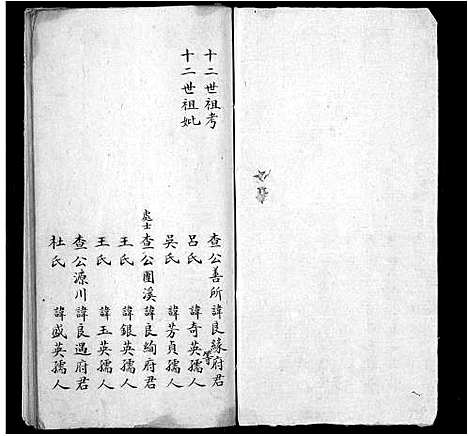 十二世祖考
十二世祖妣
查公善所 諱良緣府君
呂氏 諱奇英孺人
吳氏 諱芳貞孺人
處士查公園溪 諱良絢府君
王氏 諱銀英孺人
王氏 諱玉英孺人
查公源川 諱良遇府君
杜氏 諱盛英孺人